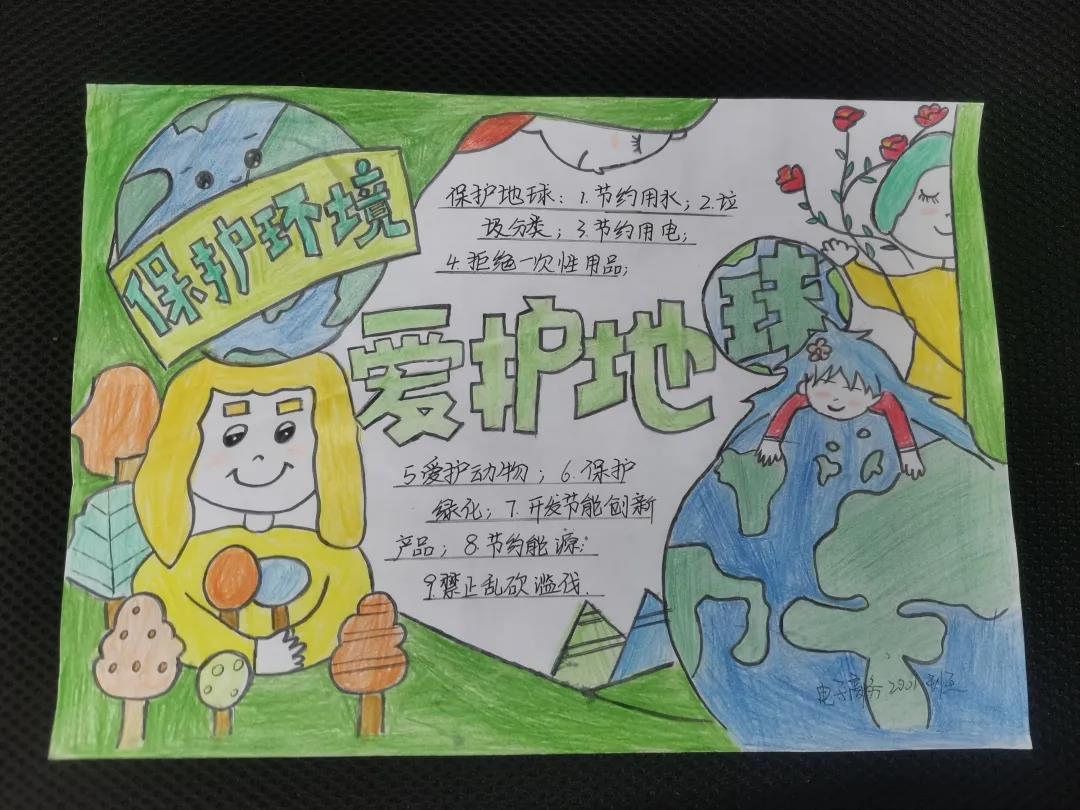 保护环境
保护地球：1.节约用水；2.垃
圾分类；3.节约用电；
4.拒绝一次性用品；
爱护地球
5.爱护动物；6.保护
绿化；7.开发节能创新
产品；8.节约能源；
9.禁止乱砍滥伐.
电子商务2001班